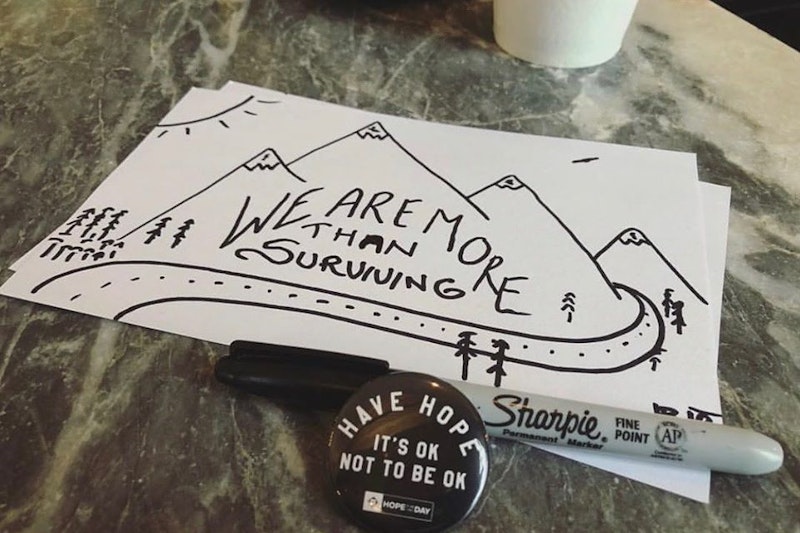 WE ARE MORE
THAN
SURVIVING
Sharpie
Permanent Marker
FINE
POINT
AP
HAVE HOPE
IT'S OK
NOT TO BE OK
HOPE FOR THE DAY